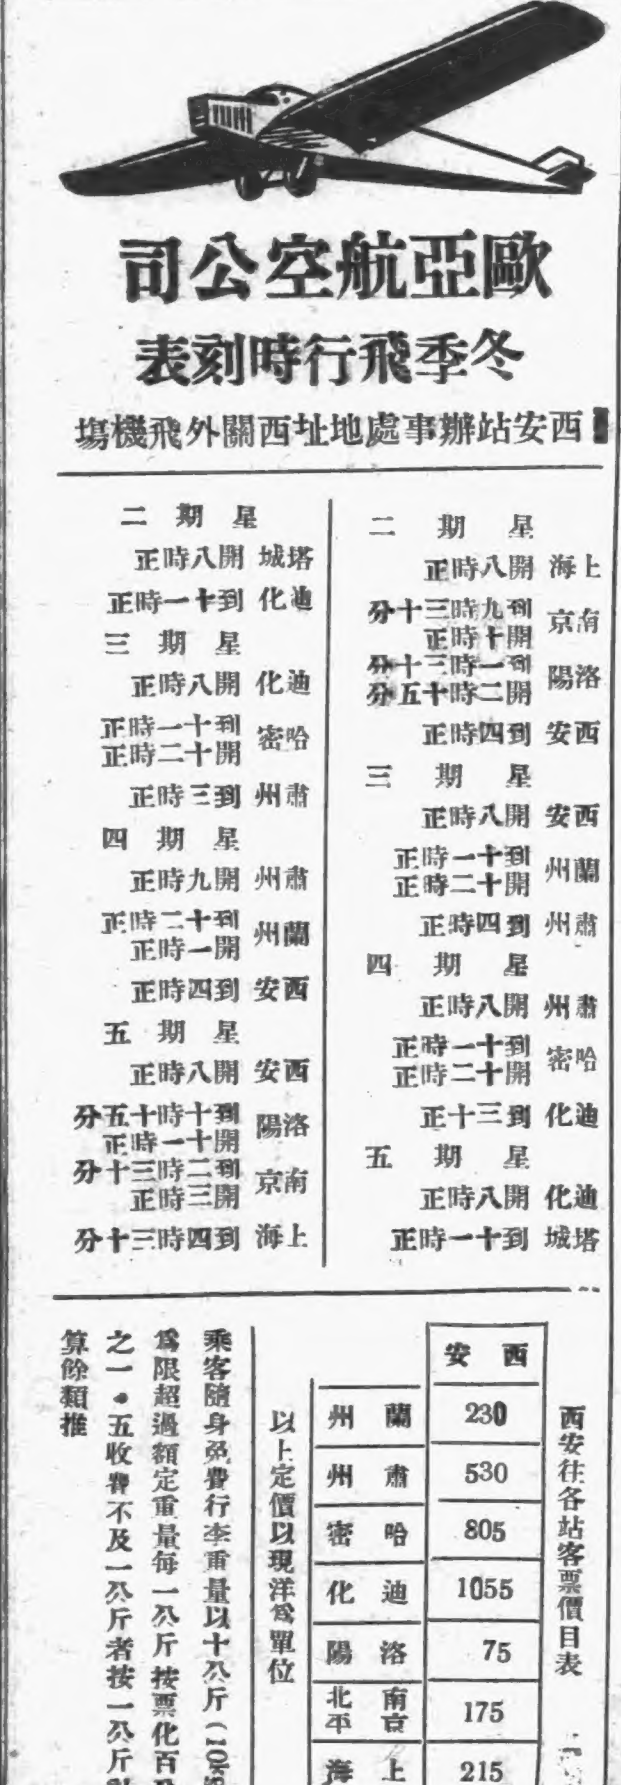 歐亞航空公司
冬季飛行時刻表
西安站辦事處地址西關外飛機場
星期二
上海 開八時正
南京 到九時三十分
開十時正
洛陽 到一時三十分
開二時十五分
西安 到四時正
星期三
西安 開八時正
蘭州 到十一時正
開十二時正
肅州 到四時正
星期四
肅州 開八時正
哈密 到十一時正
開十二時正
迪化 到三十正
星期五
迪化 開八時正
塔城 到十一時正
星期二
塔城 開八時正
迪化 到十一時正
星期三
迪化 開八時正
哈密 到十一時正
開十二時正
肅州 到三時正
星期四
肅州 開九時正
蘭州 到十二時正
開一時正
西安 到四時正
星期五
西安 開八時正
洛陽 到十時十五分
開十一時正
南京 到二時三十分
開三時正
上海 到四時三十分
西安往各站客票價目表
西安
蘭州 230
肅州 530
哈密 805
迪化 1055
洛陽 75
南京 北平 175
上海 215
以上定價以現洋爲單位
乘客隨身免費行李重量以十公斤(10kg
爲限超過額定重量每一公斤按票化百
之一•五收費不及一公斤者按一公斤
算餘類推